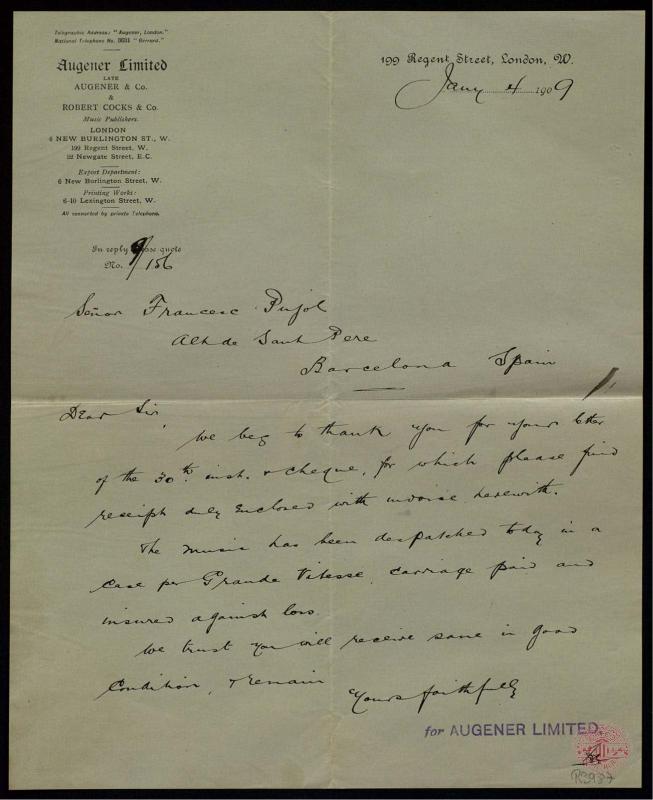 Telegraphic Address: "Augener, London."
National Telephone No. 8631 "Gerrard."
Augener Limited
LATE
AUGENER & Co.
&
ROBERT COCKS & Co.
Music Publishers.
LONDON
6 NEW BURLINGTON ST., W.
199 Regent Street, W.
22 Newgate Street, E.C.
Export Department:
6 New Burlington Street, W.
Printing Works:
6-10 Lexington Street, W.
All connected by private Telephone.
199 Regent Street, London, W.
Jany 4 1909
In reply please quote
No. 9/156
Señor Francesc Pujol
Alt de Sant Pere
Barcelona Spain
Dear Sir,
We beg to thank you for your letter
of the 30th inst. & cheque, for which please find
receipt duly enclosed with invoice herewith.
The music has been despatched today in a
case per Grande Vitesse, carriage paid and
insured against loss.
We trust you will receive same in good
condition, & remain
Yours faithfully
for AUGENER LIMITED.
R3987